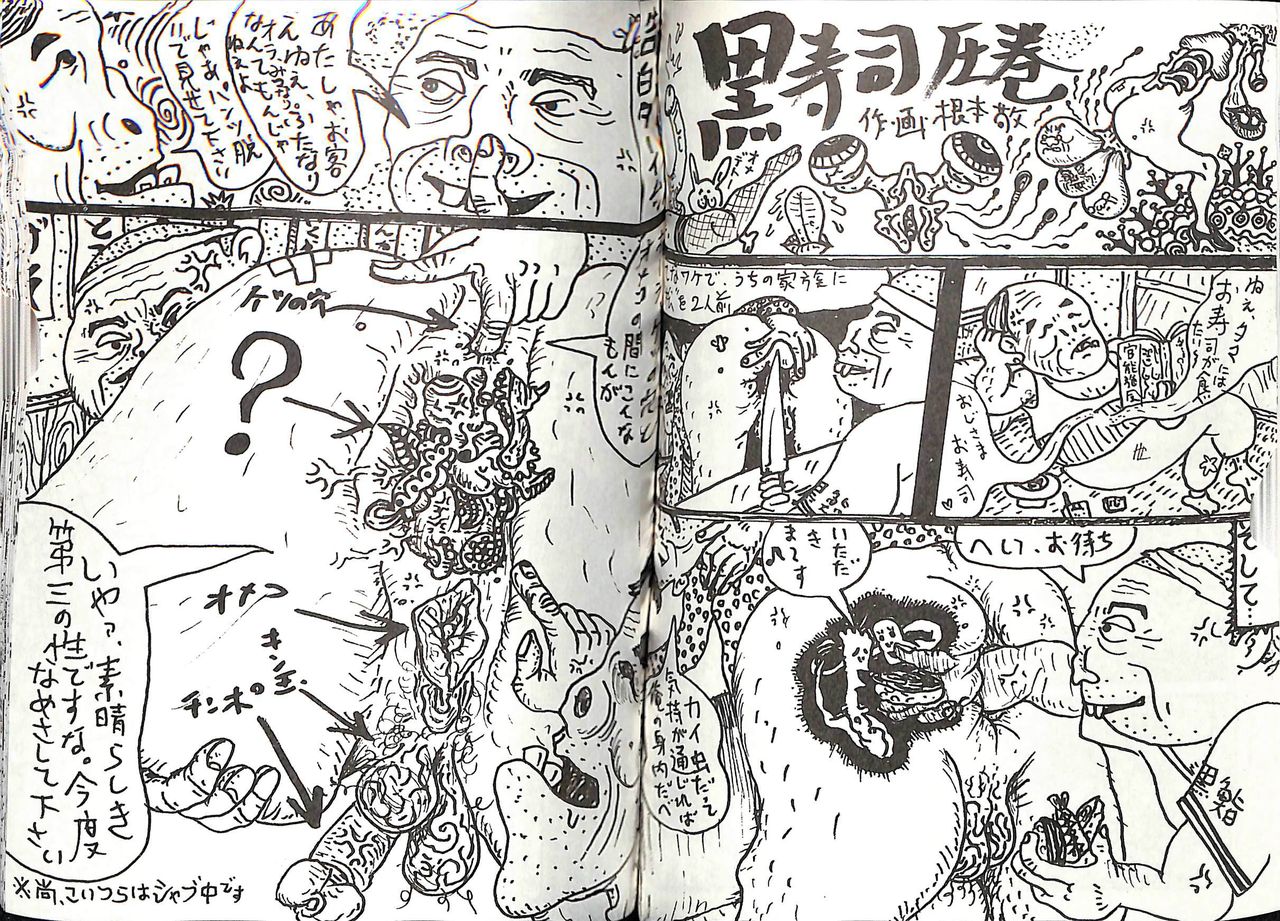 黒寿司圧巻
作・画 根本敬
ねぇ、タマには
お寿司が食
たい〜
おじさま
お寿司♡
官能譜
なワケで、うちの家族に
を2人前
そして…
へして、お待ち
いただ
きまてす
黒鮨
カイ虫だって
気持が通じれば
の身内だべ
あたしゃ、お客
さんねぇ、ふたなり
なんてもんじゃ
ねぇよ
じゃあパンツ脱
いで見せて下さい
の間にこんな
もんが
ケツの穴
?
オメコ
キン玉
チンポ
いやァ、素晴らしき
第三の性ですな。今度
なめさして下さい
※尚、こいつらはシャブ中です